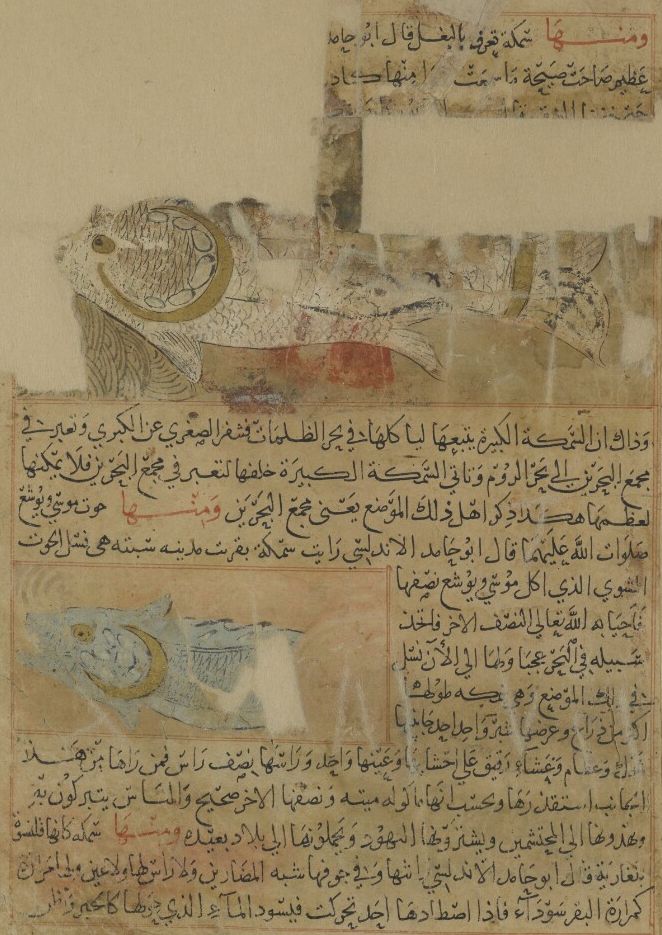 ومنها سمكة تعرف بالبغل قال ابو حامد
عظيم صاحت صيحة ما سمعت منها كاد
وذاك ان السمكة الكبيرة يتبعها لياكلها في بحر الظلمات فتفر الصغرى عن الكبرى وتعبر في
مجمع البحرين الى بحر الروم وتاتي السمكة الكبيرة خلفها لتعبر في مجمع البحرين فلا يمكنها
لعظمها هكذا ذكر اهل ذلك الموضع يعني مجمع البحرين ومنها حوت موسى ويوشع
صلوات الله عليهما قال ابو حامد الاندلسي رايت سمكة بقرب مدينه سبته هي نسل الحوت
المشوي الذي اكل موسى ويوشع نصفها
فاحيا الله تعالى النصف الاخر فاتخذ
سبيله في البحر عجبا ولها الى الآن نسل
في ذلك الموضع وهي سمكة طولها
اكثر من ذراع وعرضها شبر واحد احد جانبها
شوك وعظام وغشاء رقيق على احشائها وعينها واحد وراسها نصف راس فمن راها من هذا
الجانب استقذرها ويحسب انها ماكوله ميته ونصفها الاخر صحيح والناس يتبركون بها
ويهدونها الى المحتشمين ويشتريها اليهود ويحملونها الى بلاد بعيده ومنها سمكة كانها قلنسوة
قال ابو حامد الاندلسي رايتها وفي جوفها شبه المصارين ولا راس لها ولا عين ولها مرارة
كمرارة البقر سوداء فاذا اصطادها احد تحركت فيسود الماء الذي حولها كالحبر